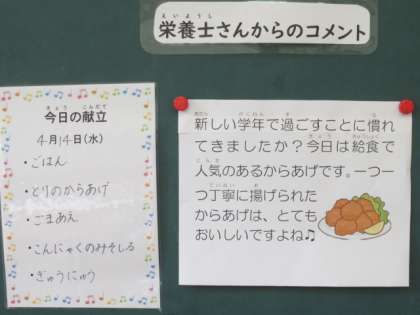 栄養士さんからのコメント
今日の献立
4月14日(水)
・ごはん
・とりのからあげ
・ごまあえ
・こんにゃくのみそしる
・ぎゅうにゅう
新しい学年で過ごすことに慣れ
てきましたか？今日は給食で
人気のあるからあげです。一つ一
つ丁寧に揚げられた
からあげは、とても
おいしいですよね♫